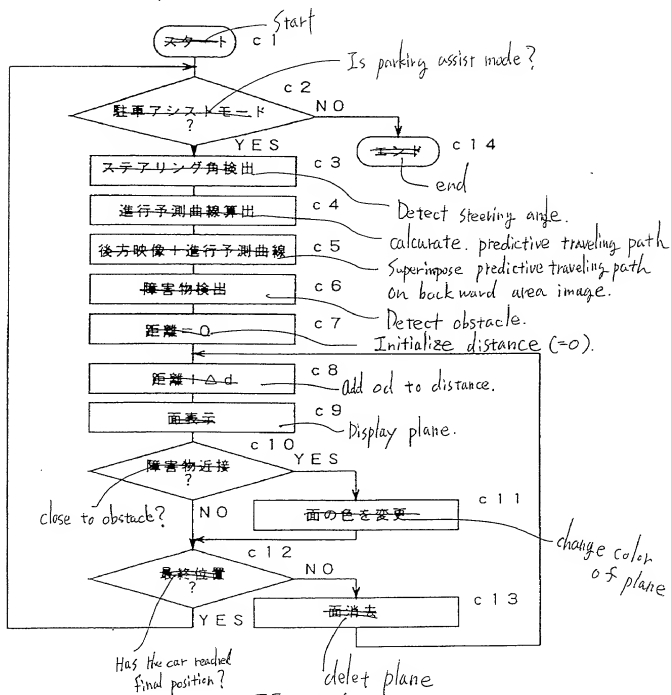 Start
スタート c1
Is parking assist mode?
c2
駐車アシストモード
?
NO
YES
エンド c14
end
ステアリング角検出 c3
Detect steering angle.
進行予測曲線算出 c4
calcurate. predictive traveling path
後方映像+進行予測曲線 c5
Superimpose predictive traveling path
on backward area image.
障害物検出 c6
Detect obstacle.
距離=0 c7
Initialize distance (=0).
距離+△d c8
Add od to distance.
面表示 c9
Display plane.
c10
障害物近接
?
YES
close to obstacle?
NO
面の色を変更 c11
change color
of plane
c12
最終位置
?
NO
YES
面消去 c13
Has the car reached
final position?
delet plane